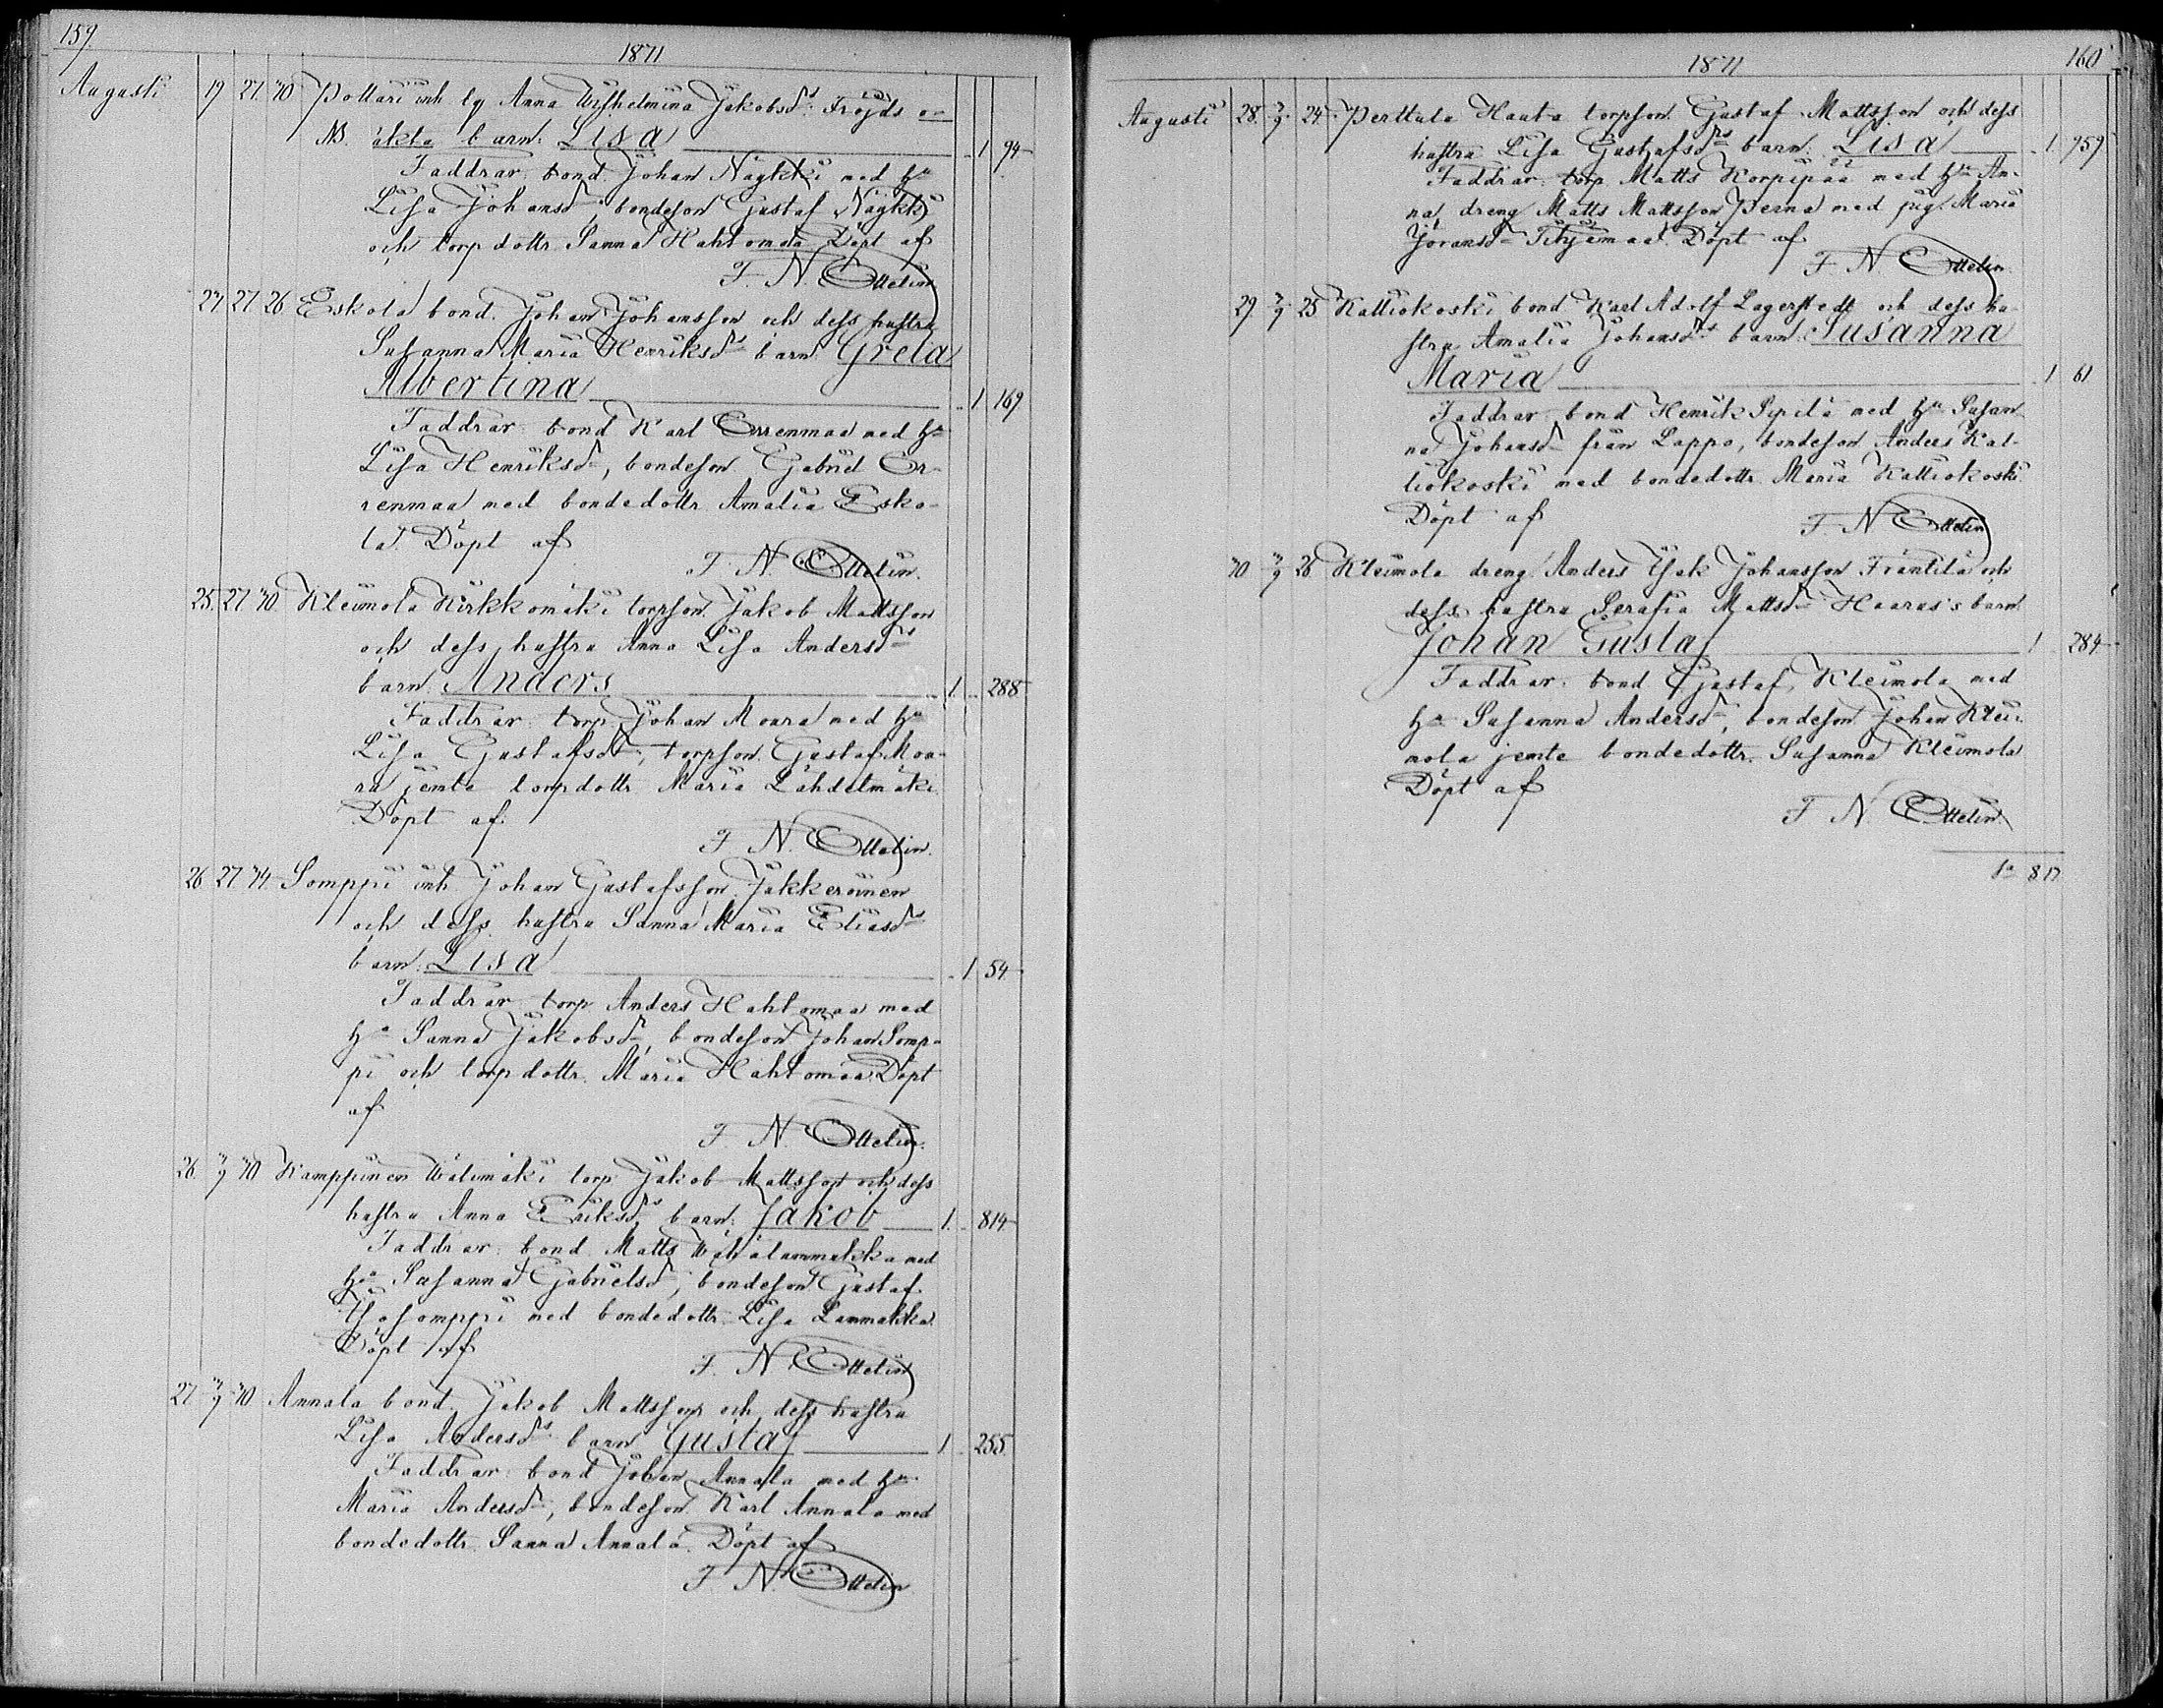 159.
1871
Augusti 19 27. 30 Pottari inh lg Anna Wilhelmina Jakobsd:s Fröjds o-
NB. äkta barn. Lisa 1 94
Faddrar. bond. Johan Nägkki med h:u
Lisa Johansd:r, bondeson Gustaf Nägkki
och torpdottr. Sanna Hahtomaa Döpt af
F. N. Ottelin.
23 27 26 Eskola bond. Johan Johansson och dess hustru
Susanna Maria Henriksd:rs barn. Greta
Albertina 1 169
Faddrar. bond Karl Orrenmaa med h:u
Lisa Henriksd:r, bondeson Gabriel Or-
renmaa med bondedottr. Amalia Esko-
la. Döpt af
F. N. Ottelin.
25. 27 30 Kleimola Kirkkomäki torpson Jakob Mattsson
och dess hustru Anna Lisa Andersd:rs
barn. Anders 1 288
Faddrar. torp. Johan Moara med h:u
Lisa Gustafsd:r, torpson Gustaf Moa-
ra jemte torpdottr. Maria Lähdetmäki
Döpt af.
F. N. Ottelin.
26 27 34. Somppi inh. Johan Gustafsson Jakkeroinen
och dess hustru Sanna Maria Eliasd:rs
barn. Lisa 1 54
Faddrar. torp Anders Hahtomaa med
h:u Sanna Jakobsd:r, bondeson Johan Somp-
pi och torpdottr. Maria Hahtomaa Döpt
af
F. N. Ottelin.
26. 3/9 30 Kamppinen Wälimäki torp. Jakob Mattsson och dess
hustru Anna Eriksd:rs barn. Jakob 1. 314
Faddrar. bond. Matts Wähälammakka med
h:u Susanna Gabrielsd:r, bondeson Gustaf
Isosomppi med bondedottr. Lisa Lammakka.
Döpt af
F. N. Ottelin
27 3/9 30. Annala bond. Jakob Mattsson och dess hustru
Lisa Andersd:rs barn Gustaf 1 255.
Faddrar. bond Johan Annala med h:u
Maria Andersd:r, bondeson Karl Annala med
bondedottr. Sanna Annala. Döpt af
F. N. Ottelin
1871
160
Augusti 28. 3/9. 24. Perttula Hauta torpson. Gustaf Mattsson och dess
hustru Lisa Gustafsd:rs barn. Lisa 1 359
Faddrar. torp. Matts Korpipää med h:u An-
na, dreng Matts Mattsson Perna med pig. Maria
Göransd:r Döpt af
F. N. Ottelin.
29. 3/9 25 Kattiokoski bond Karl Adolf Lagerstedt och dess hu-
stru Amalia Johansd:rs barn. Susanna
Maria 1 61
Faddrar. bond Henrik Sipilä med h:u Susan-
na Johansd:r från Lappo, bondeson Anders Kat-
tiokoski med bondedottr. Maria Kattiokoski.
Döpt af F. N. Ottelin
30 3/9 26 Kleimola dreng. Anders Isak Johansson Frantila och
dess hustru Serafia Mattsd:r Haaras's barn.
Johan Gustaf 1 284
Faddrar. bond Gustaf Kleimola med
h:u Susanna Andersd:r, bondeson Johan Klei-
mola jemte bondedottr. Susanna Kleimola
Döpt af
F. N. Ottelin.
S:a 8.17